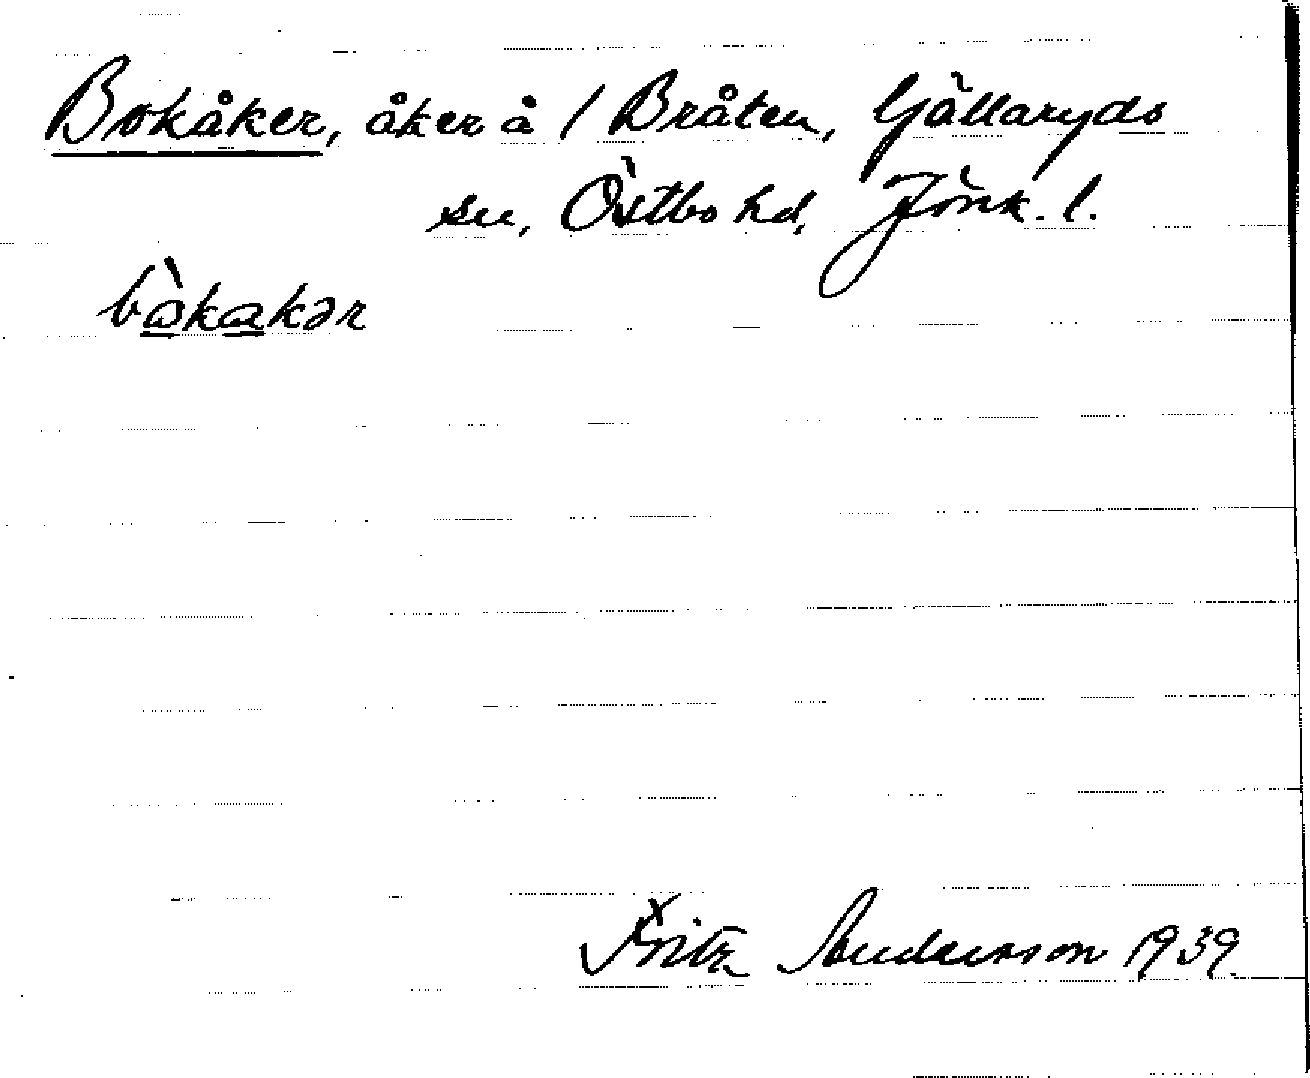 Bokåker, åker å / Bråten, Gällaryds
sn, Östbo hd, Jönk. l.
bòkakər
Fritz Andersson 1939.